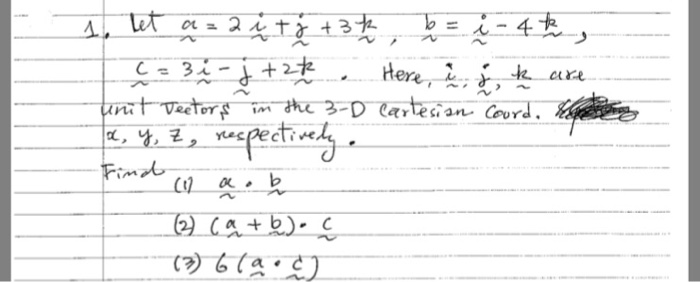 1. Let a = 2i + j + 3k, b = i - 4k,
c = 3i - j + 2k. Here, i, j, k are
unit vectors in the 3-D Cartesian Coord.
x, y, z, respectively.
Find
(1) a · b
(2) (a + b) · c
(3) 6(a · c)